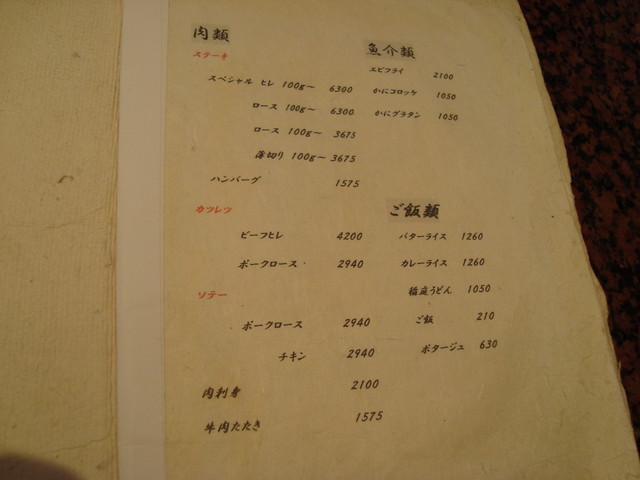 肉類
ステーキ
スペシャル ヒレ 100g〜 6300
ロース 100g〜 6300
ロース 100g〜 3675
薄切り 100g〜 3675
ハンバーグ 1575
カツレツ
ビーフヒレ 4200
ポークロース 2940
ソテー
ポークロース 2940
チキン 2940
肉刺身 2100
牛肉たたき 1575
魚介類
エビフライ 2100
かにコロッケ 1050
かにグラタン 1050
ご飯類
バターライス 1260
カレーライス 1260
稲庭うどん 1050
ご飯 210
ポタージュ 630